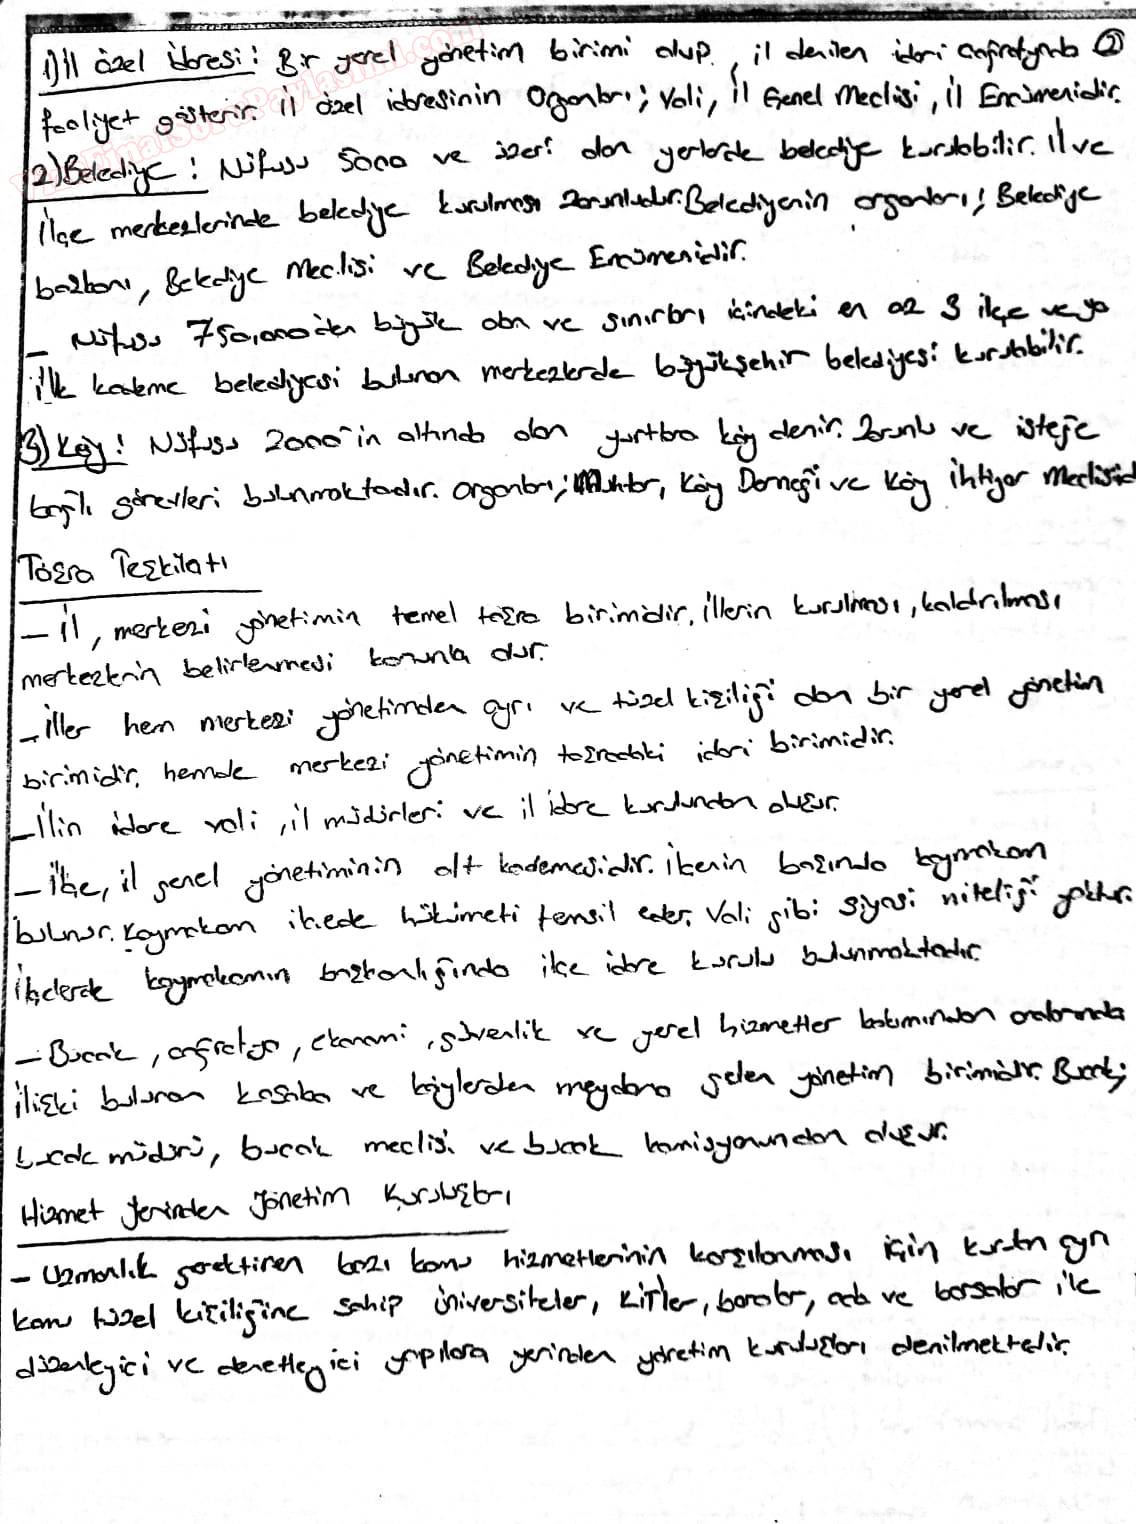 1) İl özel İdaresi: Bir yerel yönetim birimi olup, il denilen idari coğrafyada ②
faaliyet gösterir. İl özel idaresinin organları; Vali, İl Genel Meclisi, İl Encümenidir.
2) Belediye: Nüfusu 5000 ve üzeri olan yerlerde belediye kurulabilir. İl ve
İlçe merkezlerinde belediye kurulması zorunludur. Belediyenin organları; Belediye
başkanı, Belediye Meclisi ve Belediye Encümenidir.
– Nüfusu 750.000'den büyük olan ve sınırları içindeki en az 3 ilçe veya
ilk kademe belediyesi bulunan merkezlerde büyükşehir belediyesi kurulabilir.
3) Köy: Nüfusu 2000'in altında olan yurtlara köy denir. Zorunlu ve isteğe
bağlı görevleri bulunmaktadır. Organları; Muhtar, Köy Derneği ve Köy İhtiyar Meclisid
Taşra Teşkilatı
– İl, merkezi yönetimin temel taşra birimidir, illerin kurulması, kaldırılması
merkezlerin belirlenmesi kanunla olur.
– İller hem merkezi yönetimden ayrı ve tüzel kişiliği olan bir yerel yönetim
birimidir, hemde merkezi yönetimin taşradaki idari birimidir.
– İlin idare vali, il müdürleri ve il idare kurulundan oluşur.
– İlçe, il genel yönetiminin alt kademesidir. İlçenin başında kaymakam
bulunur. Kaymakam ilçede hükümeti temsil eder. Vali gibi siyasi niteliği yoktur.
İlçelerde kaymakamın başkanlığında ilçe idare kurulu bulunmaktadır.
– Bucak, coğrafya, ekonomi, güvenlik ve yerel hizmetler bakımından aralarında
ilişki bulunan kasaba ve köylerden meydana gelen yönetim birimidir. Bucak;
bucak müdürü, bucak meclisi ve bucak komisyonundan oluşur.
Hizmet Yerinden Yönetim Kuruluşları
– Uzmanlık gerektiren bazı kamu hizmetlerinin karşılanması için kurulan ayrı
kamu tüzel kişiliğine sahip üniversiteler, KİTler, barolar, oda ve borsalar ile
düzenleyici ve denetleyici yapılara yerinden yönetim kuruluşları denilmektedir.